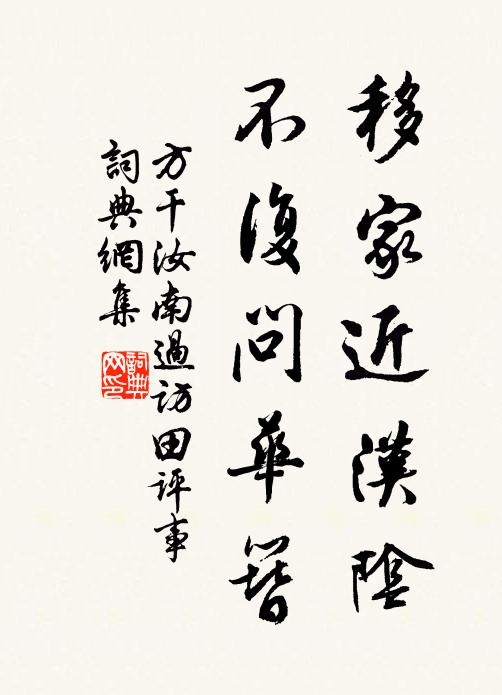 移家近漢陰
不復問華簪
方干汝南過訪田評事
詞典網集
詞典网印